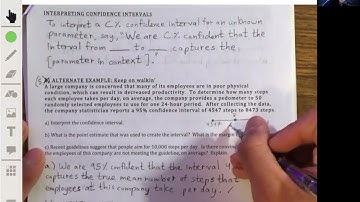 INTERPRETING CONFIDENCE INTERVALS
To interpret a C% confidence interval for an unknown
parameter, say, "We are C% confident that the
interval from ___ to ___ captures the
[parameter in context]."
ALTERNATE EXAMPLE: Keep on walkin'
A large company is concerned that many of its employees are in poor physical
condition, which can result in decreased productivity. To determine how many steps
each employee takes per day, on average, the company provides a pedometer to 50
randomly selected employees to use for one 24-hour period. After collecting the data,
the company statistician reports a 95% confidence interval of 4547 steps to 8473 steps.
a) Interpret the confidence interval.
b) What is the point estimate that was used to create the interval? What is the margin
c) Recent guidelines suggest that people aim for 10,000 steps per day. Is there convincing
the employees of this company are not meeting the guideline, on average? Explain.
a) We are 95% confident that the interval
captures the true mean number of steps that
employees at this company take per day.